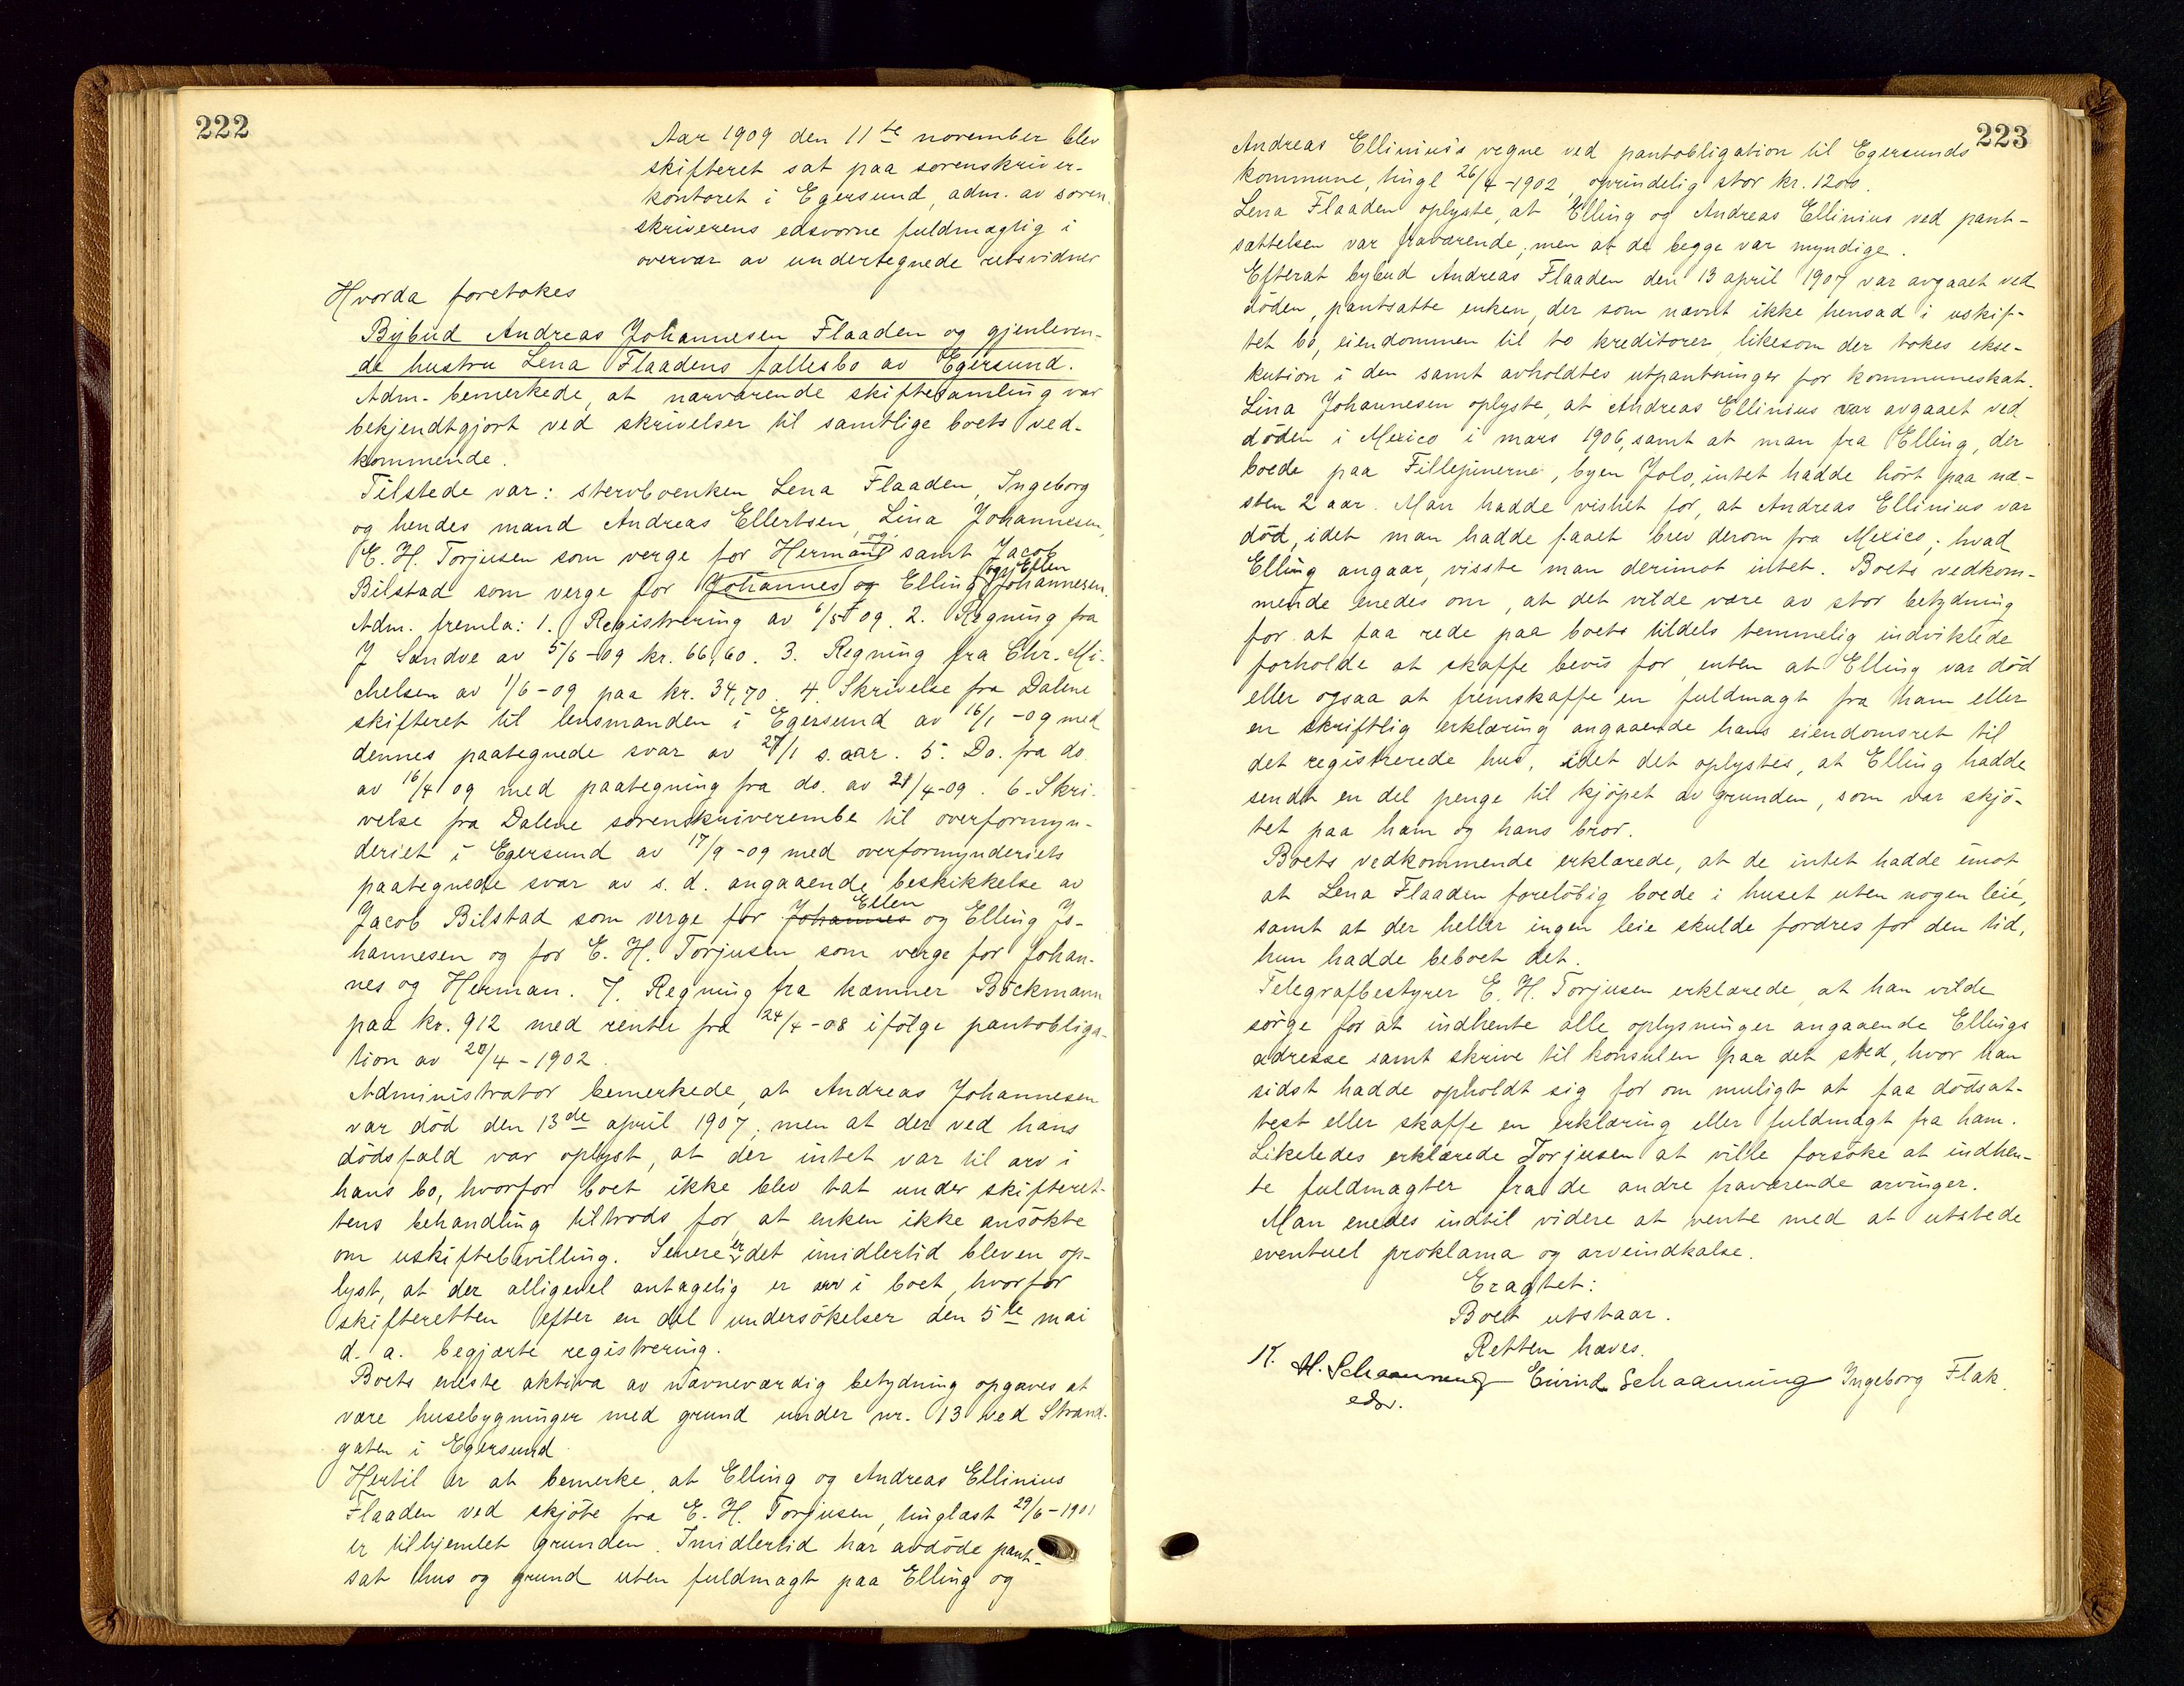 222
Aar 1909 den 11te november blev
skifteret sat paa sorenskriver-
kontoret i Egersund, adm. av soren-
skriverens edsvorne fuldmægtig i
overvær av undertegnede retsvidner
Hvorda foretokes
Bybud Andreas Johannesen Flaaden og gjenleven-
de hustru Lena Flaadens fællesbo av Egersund.
Adm. bemerkede, at nærværende skiftesamling var
bekjendtgjort ved skrivelser til samtlige boets ved-
kommende.
Tilstede var: stervboenken Lena Flaaden, Ingeborg
og hendes mand Andreas Ellertsen, Lina Johannesen,
E. H. Torjusen som verge for Herman og samt Jacob
Bilstad som verge for Johannes og Elling og Ellen Johannesen.
Adm. fremla: 1. Registrering av 6/5 09. 2. Regning fra
J Sandve av 5/6-09 kr. 66,60. 3. Regning fra Chr. Mi-
chelsen av 1/6-09 paa kr. 34,70. 4. Skrivelse fra Dalene
skifteret til lensmanden i Egersund av 16/1-09 med
dennes paategnede svar av 27/1 s. aar. 5. Do. fra do
av 16/4 09 med paategning fra do. av 21/4-09. 6. Skri-
velse fra Dalene sorenskriverembe til overformyn-
deriet i Egersund av 17/9-09 med overformynderiets
paategnede svar av s. d. angaaende beskikkelse av
Jacob Bilstad som verge for Johannes Ellen og Elling Jo-
hannesen og for E. H. Torjusen som verge for Johan-
nes og Herman. 7. Regning fra kæmner Böckmann
paa kr. 912 med renter fra 24/4-08 ifölge pantobliga-
tion av 20/4-1902.
Administrator bemerkede, at Andreas Johannesen
var död den 13de april 1907, men at der ved hans
dödsfald var oplyst, at der intet var til arv i
hans bo, hvorfor boet ikke blev tat under skifteret-
tens behandling tiltrods for at enken ikke ansökte
om uskiftebevilling. Senere er det imidlertid bleven op-
lyst, at der alligevel antagelig er arv i boet, hvorfor
skifteretten efter en del undersökelser den 5te mai
d. a. begjærte registrering.
Boets eneste aktiva av nævneværdig betydning opgaves at
være husebygninger med grund under nr. 13 ved Strand-
gaten i Egersund
Hertil er at bemerke, at Elling og Andreas Ellinius
Flaaden ved skjöte fra E. H. Torjusen, tinglæst 29/6-1901
er tilhjemlet grunden. Imidlertid har avdöde pant-
sat hus og grund uten fuldmagt paa Elling og
223
Andreas Ellinius's vegne ved pantobligation til Egersunds
kommune, tingl 26/4-1902, oprindelig stor kr. 1200.
Lena Flaaden oplyste, at Elling og Andreas Ellinius ved pant-
sættelsen var fraværende, men at de begge var myndige.
Efterat bybud Andreas Flaaden den 13 april 1907 var avgaaet ved
döden, pantsatte enken, der som nævnt ikke hensad i uskif-
tet bo, eiendommen til to kreditorer likesom der tokes ekse-
kution i den samt avholdtes utpantninger for kommuneskat.
Lina Johannesen oplyste, at Andreas Ellinius var avgaaet ved
döden i Mexico i mars 1906, samt at man fra Elling, der
boede paa Fillepinerne, byen Jolo, intet hadde hört paa næ-
sten 2 aar. Man hadde vished for, at Andreas Ellinius var
död, idet man hadde faaet brev derom fra Mexico; hvad
Elling angaar, visste man derimot intet. Boets vedkom-
mende enedes om, at det vilde være av stor betydning
for at faa rede paa boets tildels temmelig indviklede
forholde at skaffe bevis for enten at Elling var död
eller ogsaa at fremskaffe en fuldmagt fra ham eller
en skriftlig erklæring angaaende hans eiendomsret til
det registrerede hus, idet det oplystes, at Elling hadde
sendt en del penge til kjöpet av grunden, som var skjö-
tet paa ham og hans bror.
Boets vedkommende erklærede, at de intet hadde imot,
at Lena Flaaden forelöbig boede i huset uten nogen leie,
samt at der heller ingen leie skulde fordres for den tid,
hun hadde beboet det.
Telegrafbestyrer E. H. Torjusen erklærede at han vilde
sörge for at indhente alle oplysninger angaaende Ellings
adresse samt skrive til konsulen paa det sted, hvor han
sidst hadde opholdt sig for om muligt at faa dödsat-
test eller skaffe en erklæring eller fuldmagt fra ham.
Likeledes erklærede Torjusen at ville forsöke at indhen-
te fuldmagter fra de andre fraværende arvinger.
Man enedes indtil videre at vente med at utstede
eventuel proklama og arveindkalse.
Eragtet:
Boet utstaar.
Retten hæves.
K. H. Schaanning Eivind Schaanning Ingeborg Flak.
edsv.